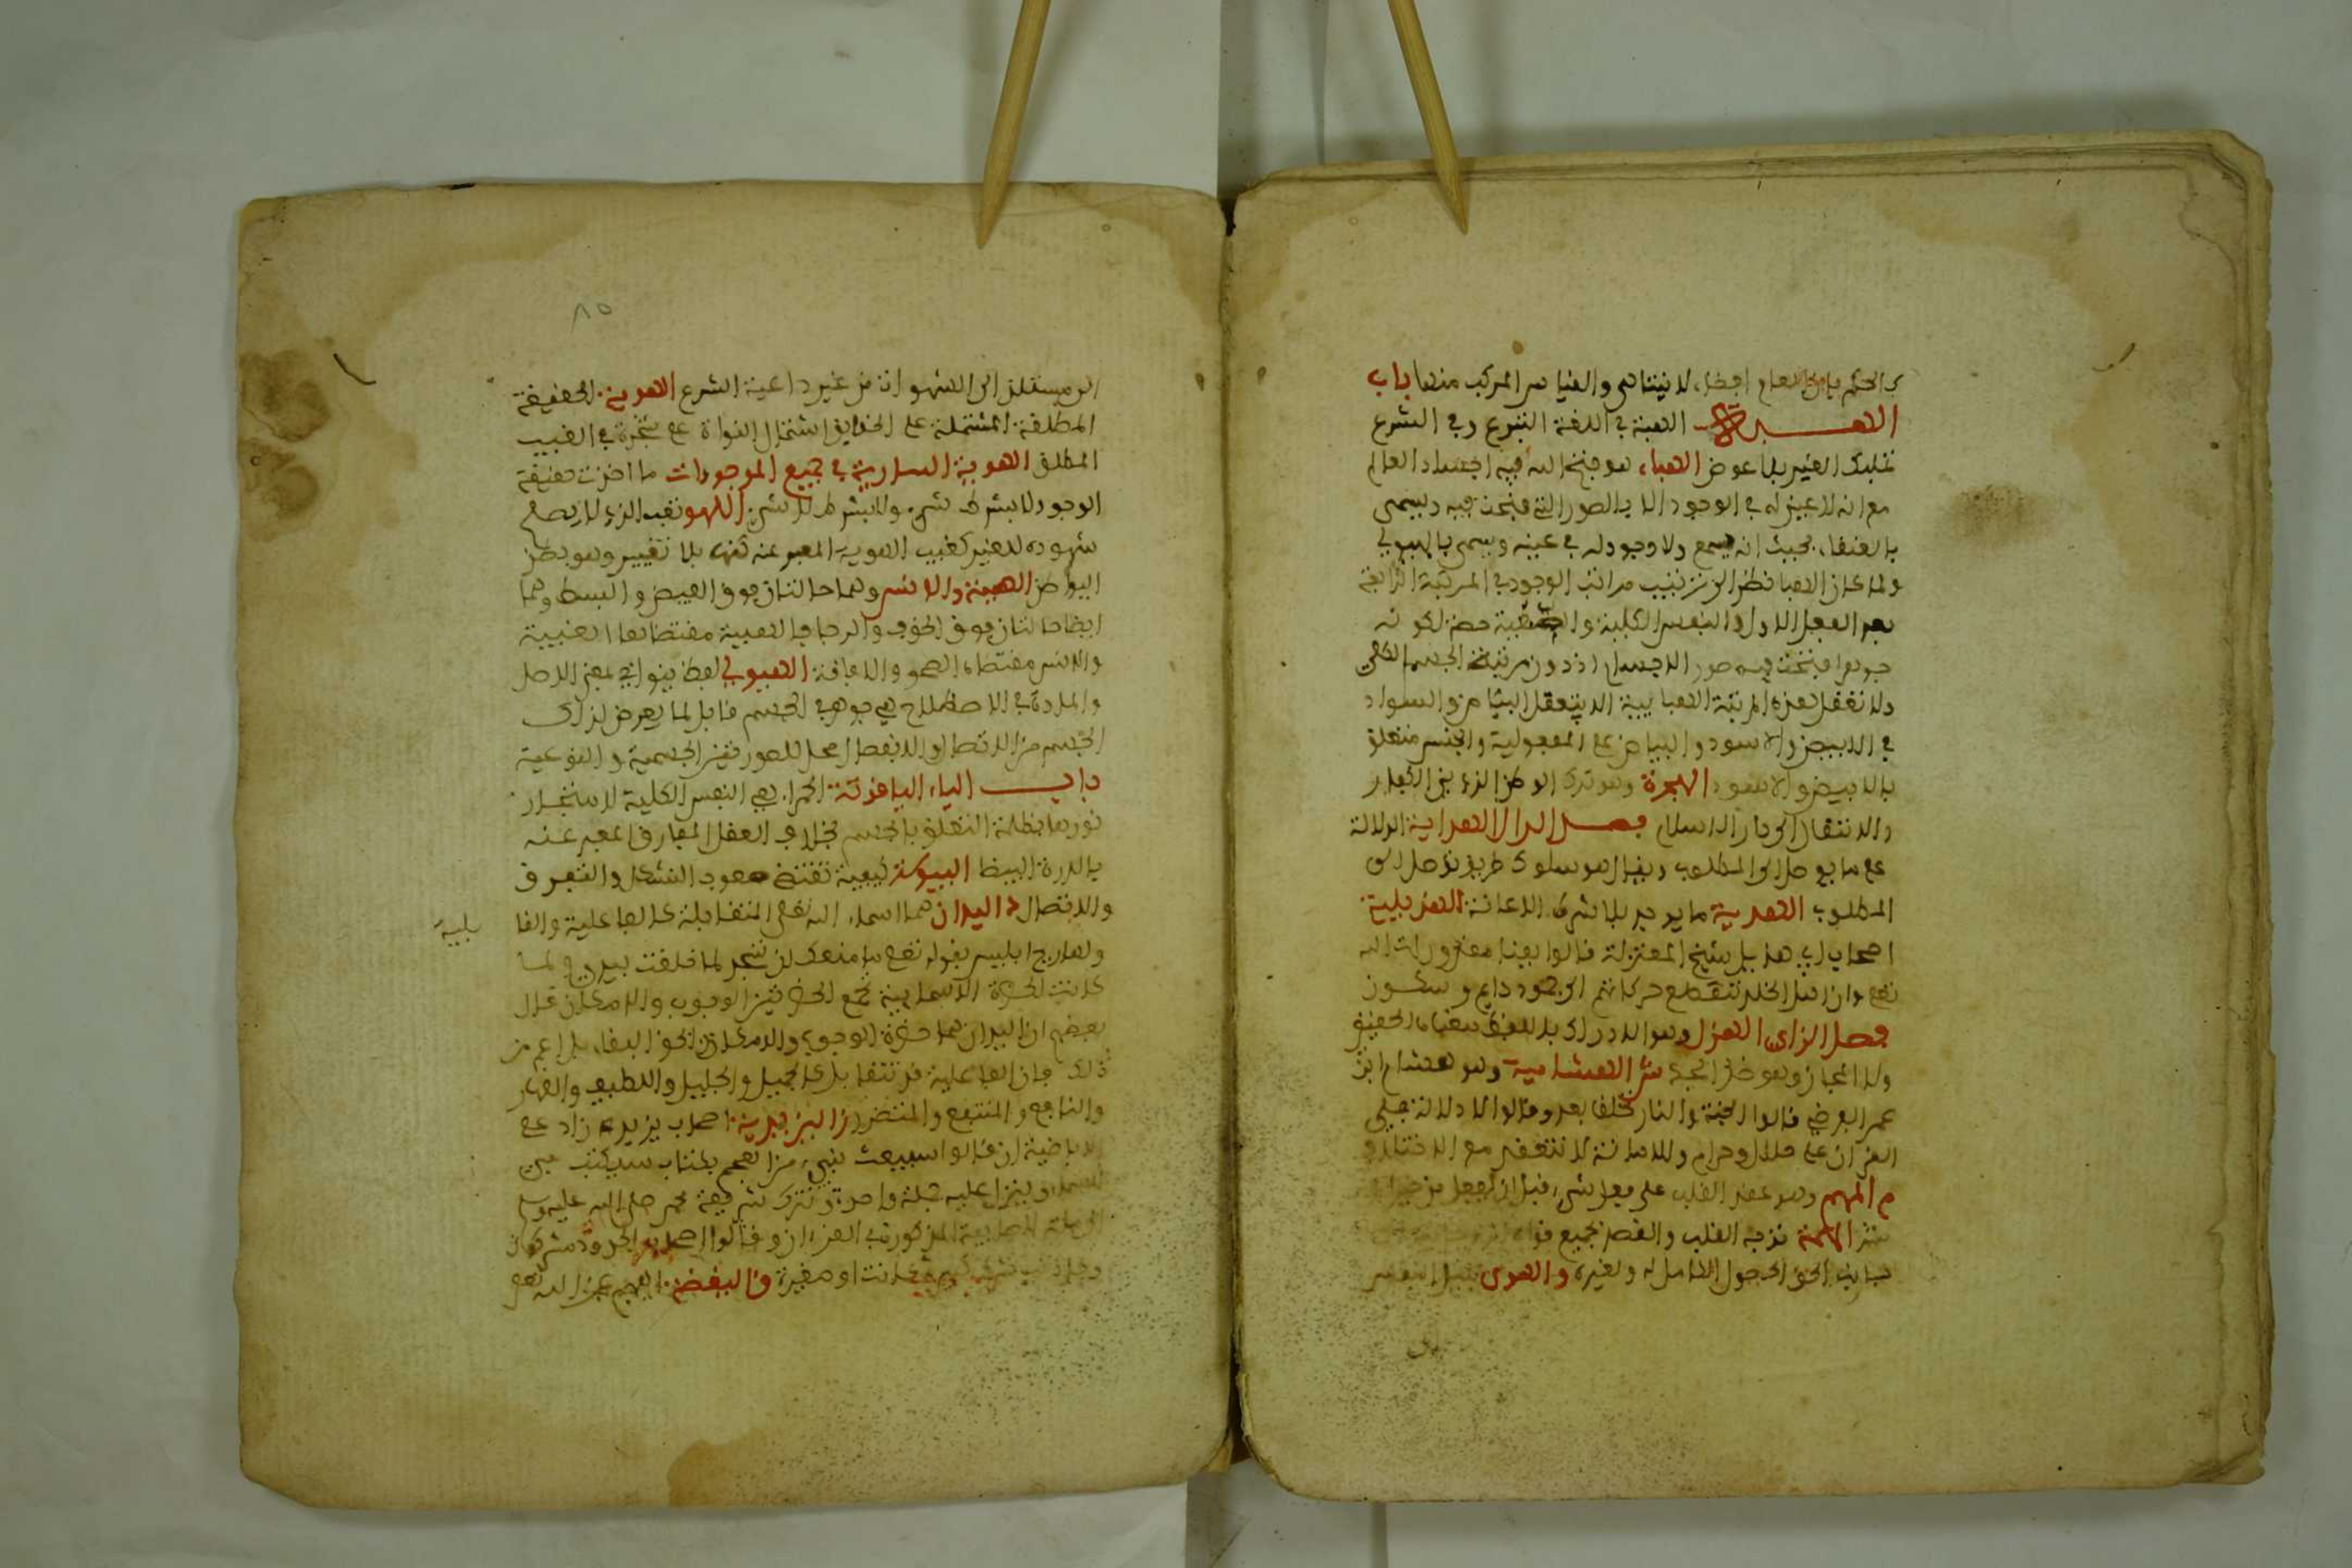 لا يتناهى والقياس المركب منهما باب
الهبة في اللغة التبرع وفي الشرع
تمليك العين بلا عوض الهباء هو الذي فتح الله فيه اجساد العالم
مع انه لا عين له في الوجود الا بالصور التي فتحت فيه ويسمى
بالعنقاء بحيث انه يسمع ولا وجود له في عينه ويسمى بالهيولى
ولما كان الهبا نظرا الى ترتيب مراتب الوجود في المرتبة الرابعة
بعد العقل الاول والنفس الكلية والطبيعة خصه لكونه
جوهرا فتحت فيه صور الاجسام اذ دون مرتبته الجسم الكلي
ولا تعقل هذه المرتبة الهبايية الا بتعقل البياض والسواد
في الابيض والاسود والبياض على المعقولية والحس متعلق
بالابيض والاسود الهجرة وهو ترك الوطن الذي بين الكفار
والانتقال الى دار الاسلام فصل الدال الهداية الدلالة
على ما يوصل الى المطلوب ويقال هو سلوك طريق توصل الى
المطلوب الهدية ما يوجد بلا شرط الاعانة الهذيلية
اصحاب ابي هذيل شيخ المعتزلة قالوا بفناء مقدورات الله
تعلى وان اهل الخلد تنقطع حركاتهم الى خمود دايم وسكون
فصل الزاي الهزل وهو الا يراد باللفظ معناه الحقيقي
ولا المجازي وهو ضد الجد ش الهشامية وهو هشام ابن
عمر الفوطي قالوا الجنة والنار لم تخلقا بعد وقالوا لا دلالة في
القران على حلال وحرام والامامة لا تنعقد مع الاختلاف
م الهم وهو عقد القلب على فعل شيء قبل ان يفعل من خير او
الهمة توجه القلب والقصد بجميع قواه
جانب الحق لحصول الكمال له ولغيره والهوى ميل النفس
الى
٨٥
الى مستلذ الى الشهوات من غير داعية الشرع الهوية الحقيقة
المطلقة المشتملة على الحقايق اشتمال النواة على شجرة في الغيب
المطلق الهوية السارية في جميع الموجودات ما اخذت حقيقة
الوجود لا بشرط شيء ولا بشرط لا شيء الهو تغيب الذي لا يصح
شهوده للغير كغيب الهوية المعبر عنه كنها بلا تعيين وهو بطن
البواطن الهيبة والانس وهما حالتان فوق القبض والبسط وهما
ايضا حالتان فوق الخوف والرجا فالهيبة مقتضاها الغيبة
والانس مقتضاه الصحو والافاقة الهيولى لفظ يوناني بمعنى الاصل
والمادة في الاصطلاح هي جوهر في الجسم قابل لما يعرض لذلك
الجسم من الاتصال والانفصال محل للصورتين الجسمية والنوعية
باب الياء الياقوتة الحمرا هي النفس الكلية لامتزاج
نورها بظلمة التعلق بالجسم بخلاف العقل المفارق المعبر عنه
بالدرة البيضا اليبوسة كيفية تقتضي صعوبة التشكل والتفرق
والاتصال د اليدان هما اسماء الله تعلى المتقابلة كالفاعلية والقا
بلية
ولهذا وبخ ابليس بقوله تعلى ما منعك ان تسجد لما خلقت بيدي ولما
كانت الحضرة الاسمايية تجمع الحضرتين الوجوب والامكان قال
بعضهم ان اليدان هما حضرة الوجوب والامكان والحق التقابل اعم من
ذلك فان الفاعلية قد تتقابل كالجميل والجليل واللطيف والقهار
والنافع والضار ز اليزيدية اصحاب يزيد زاد على
الاباضية ان قالوا سيبعث نبي من العجم بكتاب سيكتب في
السماء وينزل عليه جملة واحدة وتترك شريعة محمد صلى الله عليه وسلم
الى ملة الصابية المذكورة في القران وقالوا اصحاب الحدود مشركون
وكل ذنب شرك كبيرة كانت او صغيرة ق اليقظة الفهم عن الله تعلى